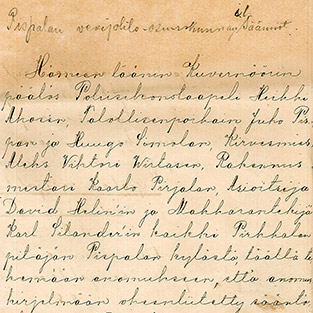 Pispalan vesijohto-osuuskunnan Säännöt.
Hämeen läänin Kuvernöörin
päätös Poliisikonstaapeli Heikki
Ahosen, Talollisenpoikain Juho Pis-
pan ja Huugo Simolan, Kirvesmies
Aleks Vihtori Virtasen, Rakennus
mestari Kaarlo Pirjalan, Asioitsija
David Helin'in ja Makkarantekijä
Karl Silander'in kaikki Pirkkalan
pitäjän Pispalan kylästä, täältä te
kemään anomukseen, että anomus
kirjelmään oheenliitetty sääntö,